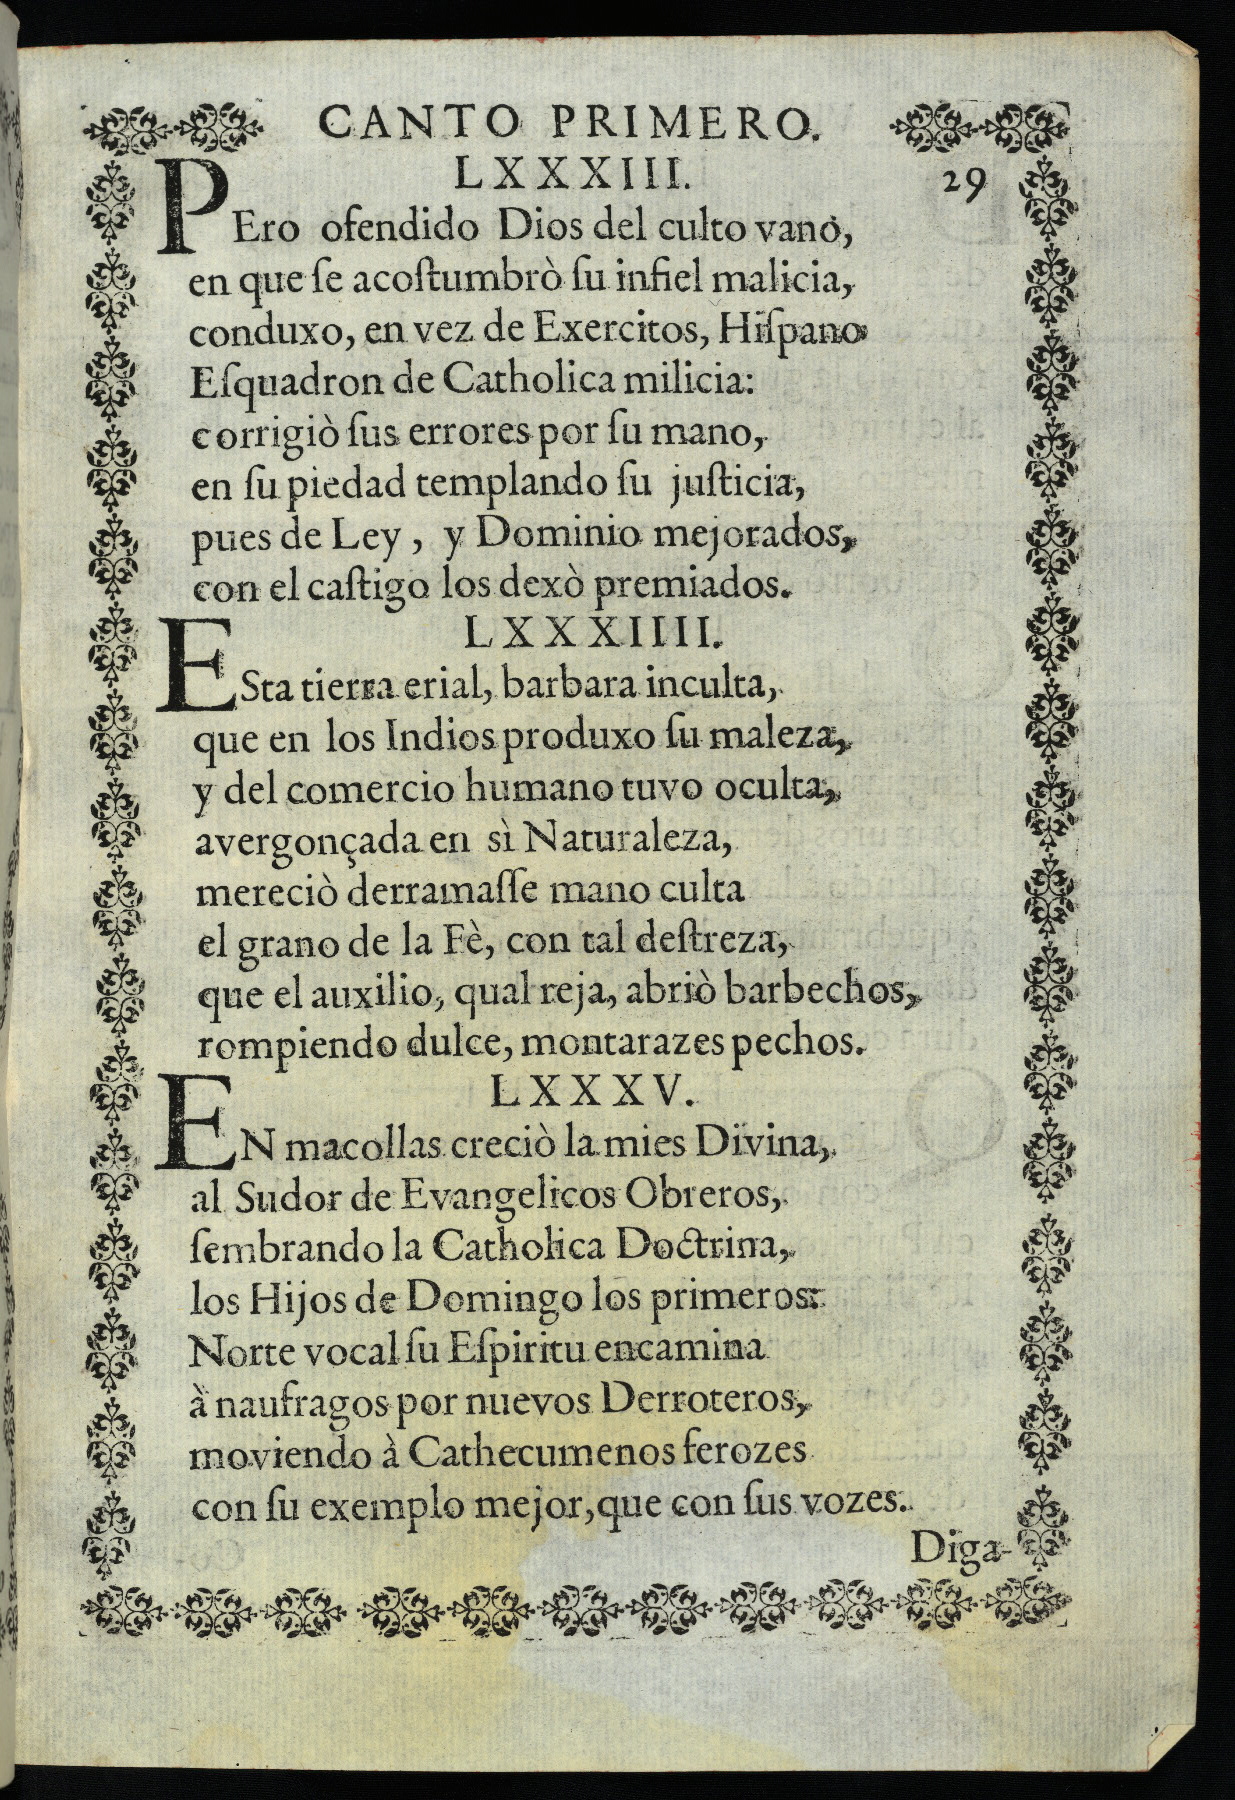 CANTO PRIMERO.
LXXXIII. 29
PEro ofendido Dios del culto vano,
en que ſe acoſtumbrò ſu infiel malicia,
conduxo, en vez de Exercitos, Hiſpano
Eſquadron de Catholica milicia:
corrigiò ſus errores por ſu mano,
en ſu piedad templando ſu juſticia,
pues de Ley, y Dominio mejorados,
con el caſtigo los dexò premiados.
LXXXIIII.
ESta tierra erial, barbara inculta,
que en los Indios produxo ſu maleza,
y del comercio humano tuvo oculta,
avergonçada en sì Naturaleza,
mereciò derramaſſe mano culta
el grano de la Fè, con tal deſtreza,
que el auxilio, qual reja, abriò barbechos,
rompiendo dulce, montarazes pechos.
LXXXV.
EN macollas creciò la mies Divina,
al Sudor de Evangelicos Obreros,
ſembrando la Catholica Doctrina,
los Hijos de Domingo los primeros:
Norte vocal ſu Eſpiritu encamina
à naufragos por nuevos Derroteros,
moviendo à Cathecumenos ferozes
con ſu exemplo mejor, que con ſus vozes.
Diga-